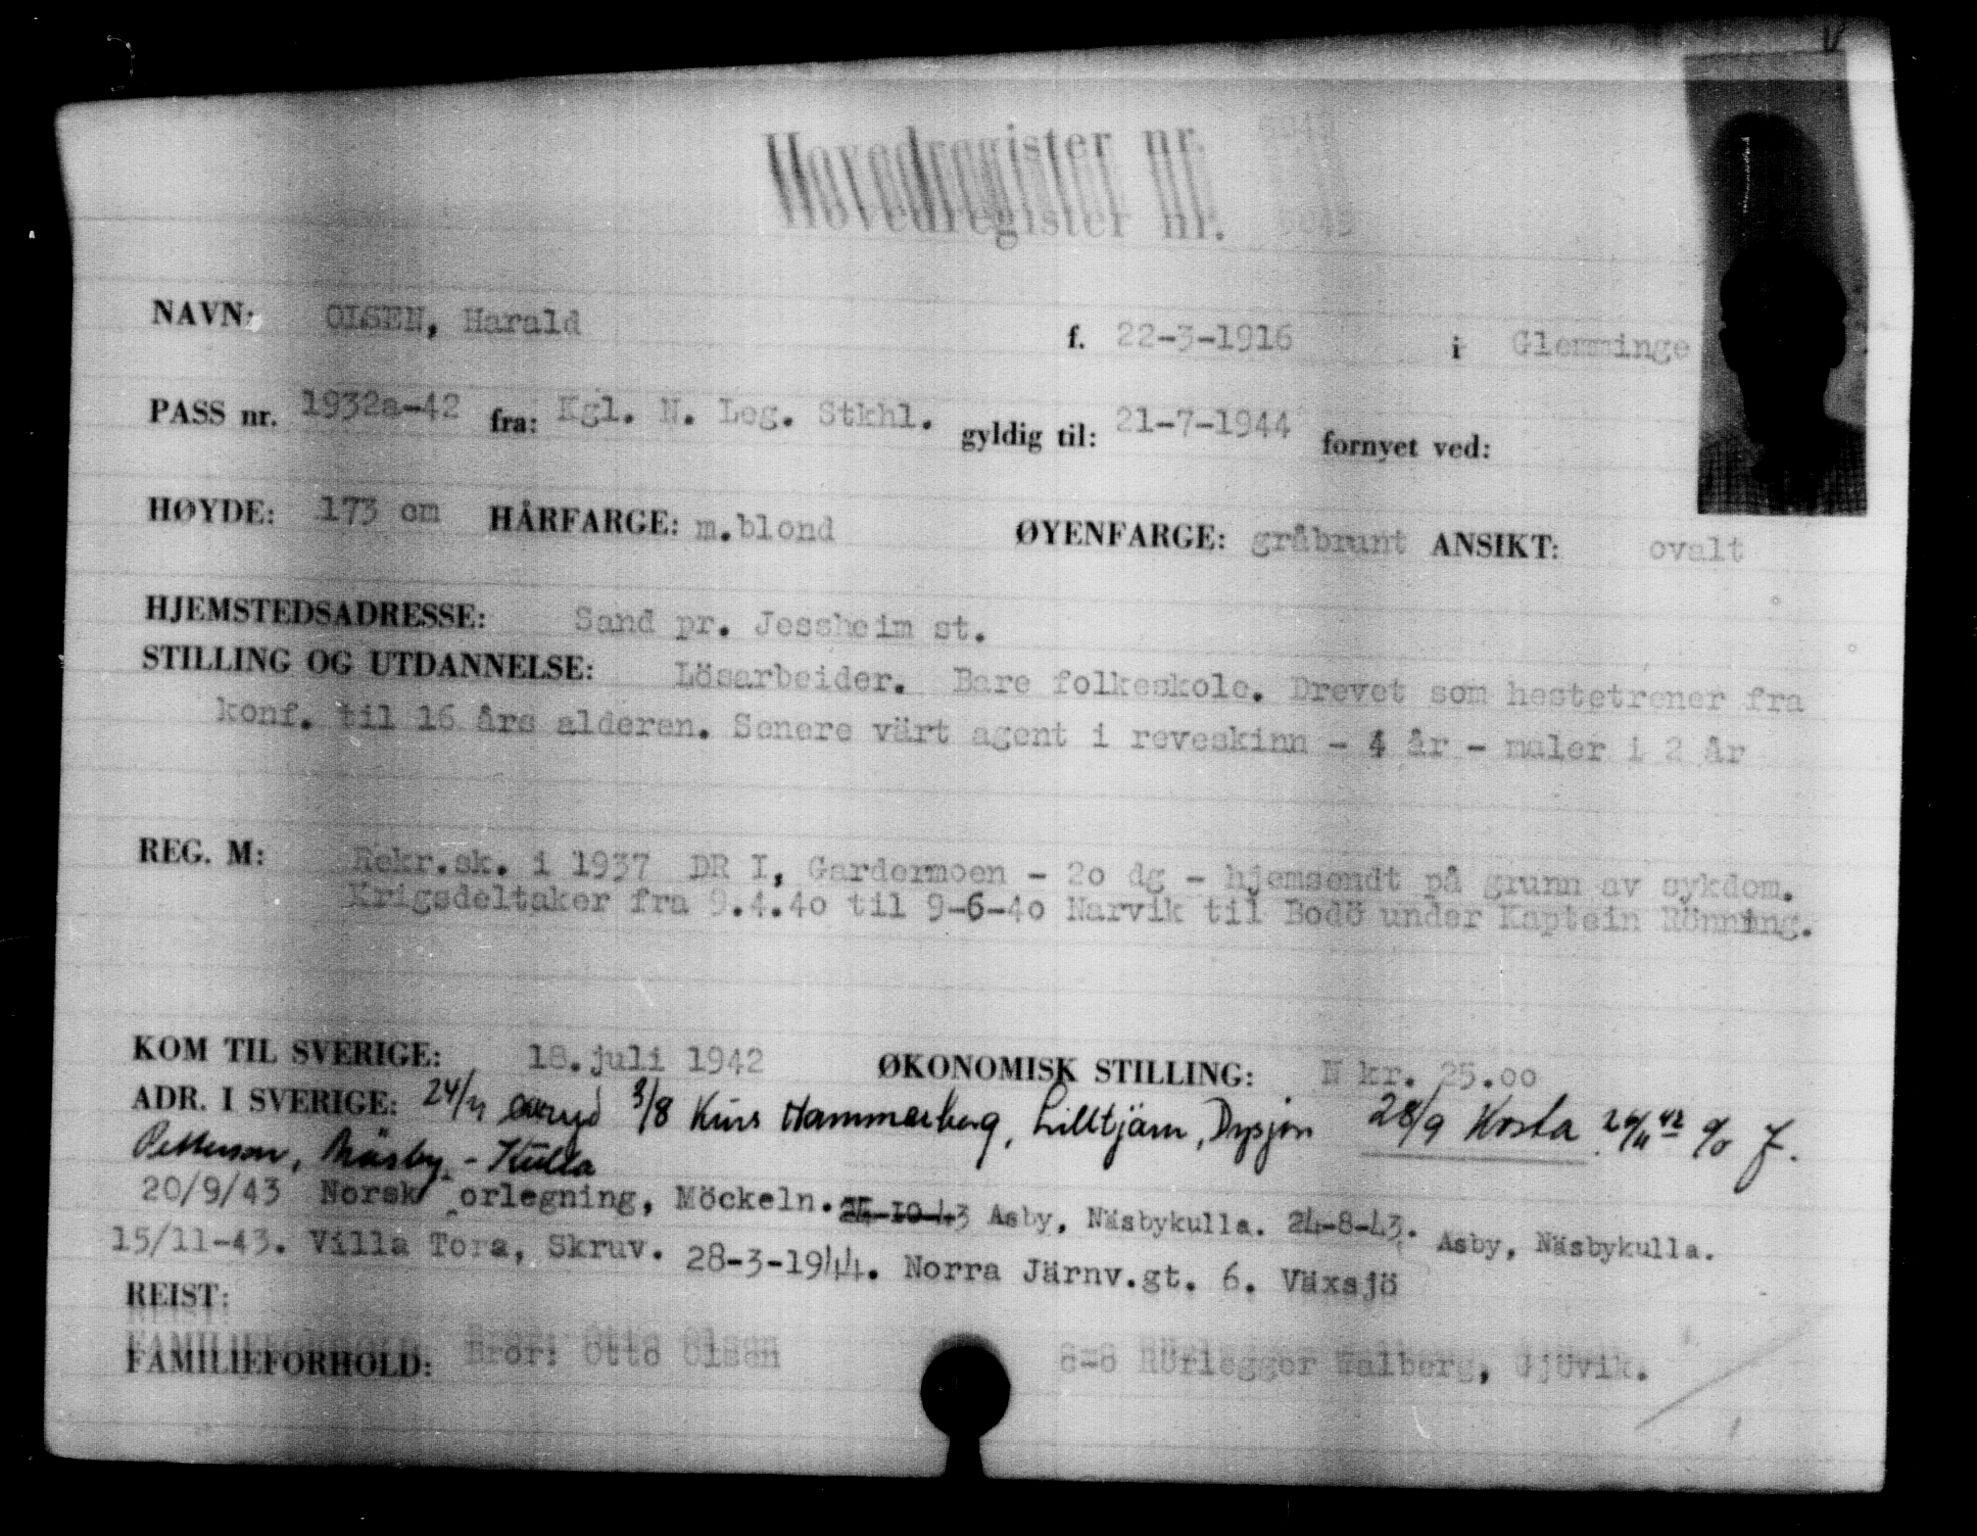 Hovedregister nr.
NAVN: OLSEN, Harald f. 22-3-1916 i Glemminge
PASS nr. 1932a-42 fra: Kgl. N. Leg. Stkhl. gyldig til: 21-7-1944 fornyet ved:
HØYDE: 173 cm HÅRFARGE: m.blond ØYENFARGE: gråbrunt ANSIKT: ovalt
HJEMSTEDSADRESSE: Sand pr. Jessheim st.
STILLING OG UTDANNELSE: Lösarbeider. Bare folkeskole. Drevet som hestetrener fra
konf. til 16 års alderen. Senere värt agent i reveskinn - 4 år - maler i 2 år
REG. M: Rekr.sk. i 1937 DR I, Gardermoen - 2o dg - hjemsendt på grunn av sykdom.
Krigsdeltaker fra 9.4.4o til 9-6-4o Narvik til Bodö under Kaptein Rönning.
KOM TIL SVERIGE: 18.juli 1942 ØKONOMISK STILLING: N kr. 25.oo
ADR. I SVERIGE: 3/8 Kurs Hammarberg, Lilltjärn, 28/9 Kosta 24/11 42 c/o J.
Petterson, Näsby-Kulla
20/9/43 Norsk orlegning, Möckeln. 24-10-43 Asby, Näsbykulla. 24-8-43. Asby, Näsbykulla.
15/11-43. Villa Tora, Skruv. 28-3-1944. Norra Järnv.gt. 6. Växsjö
REIST:
FAMILIEFORHOLD: Bror: Otto Olsen 8-8 Rörlegger Walberg, Gjövik.